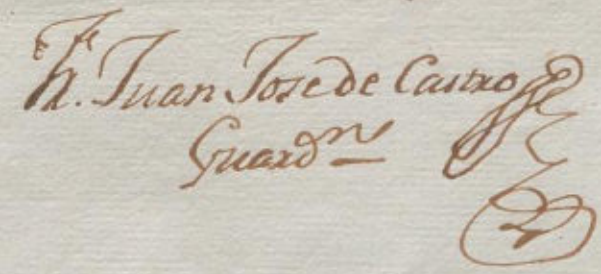 Fr. Juan Jose de Castro
Guardn